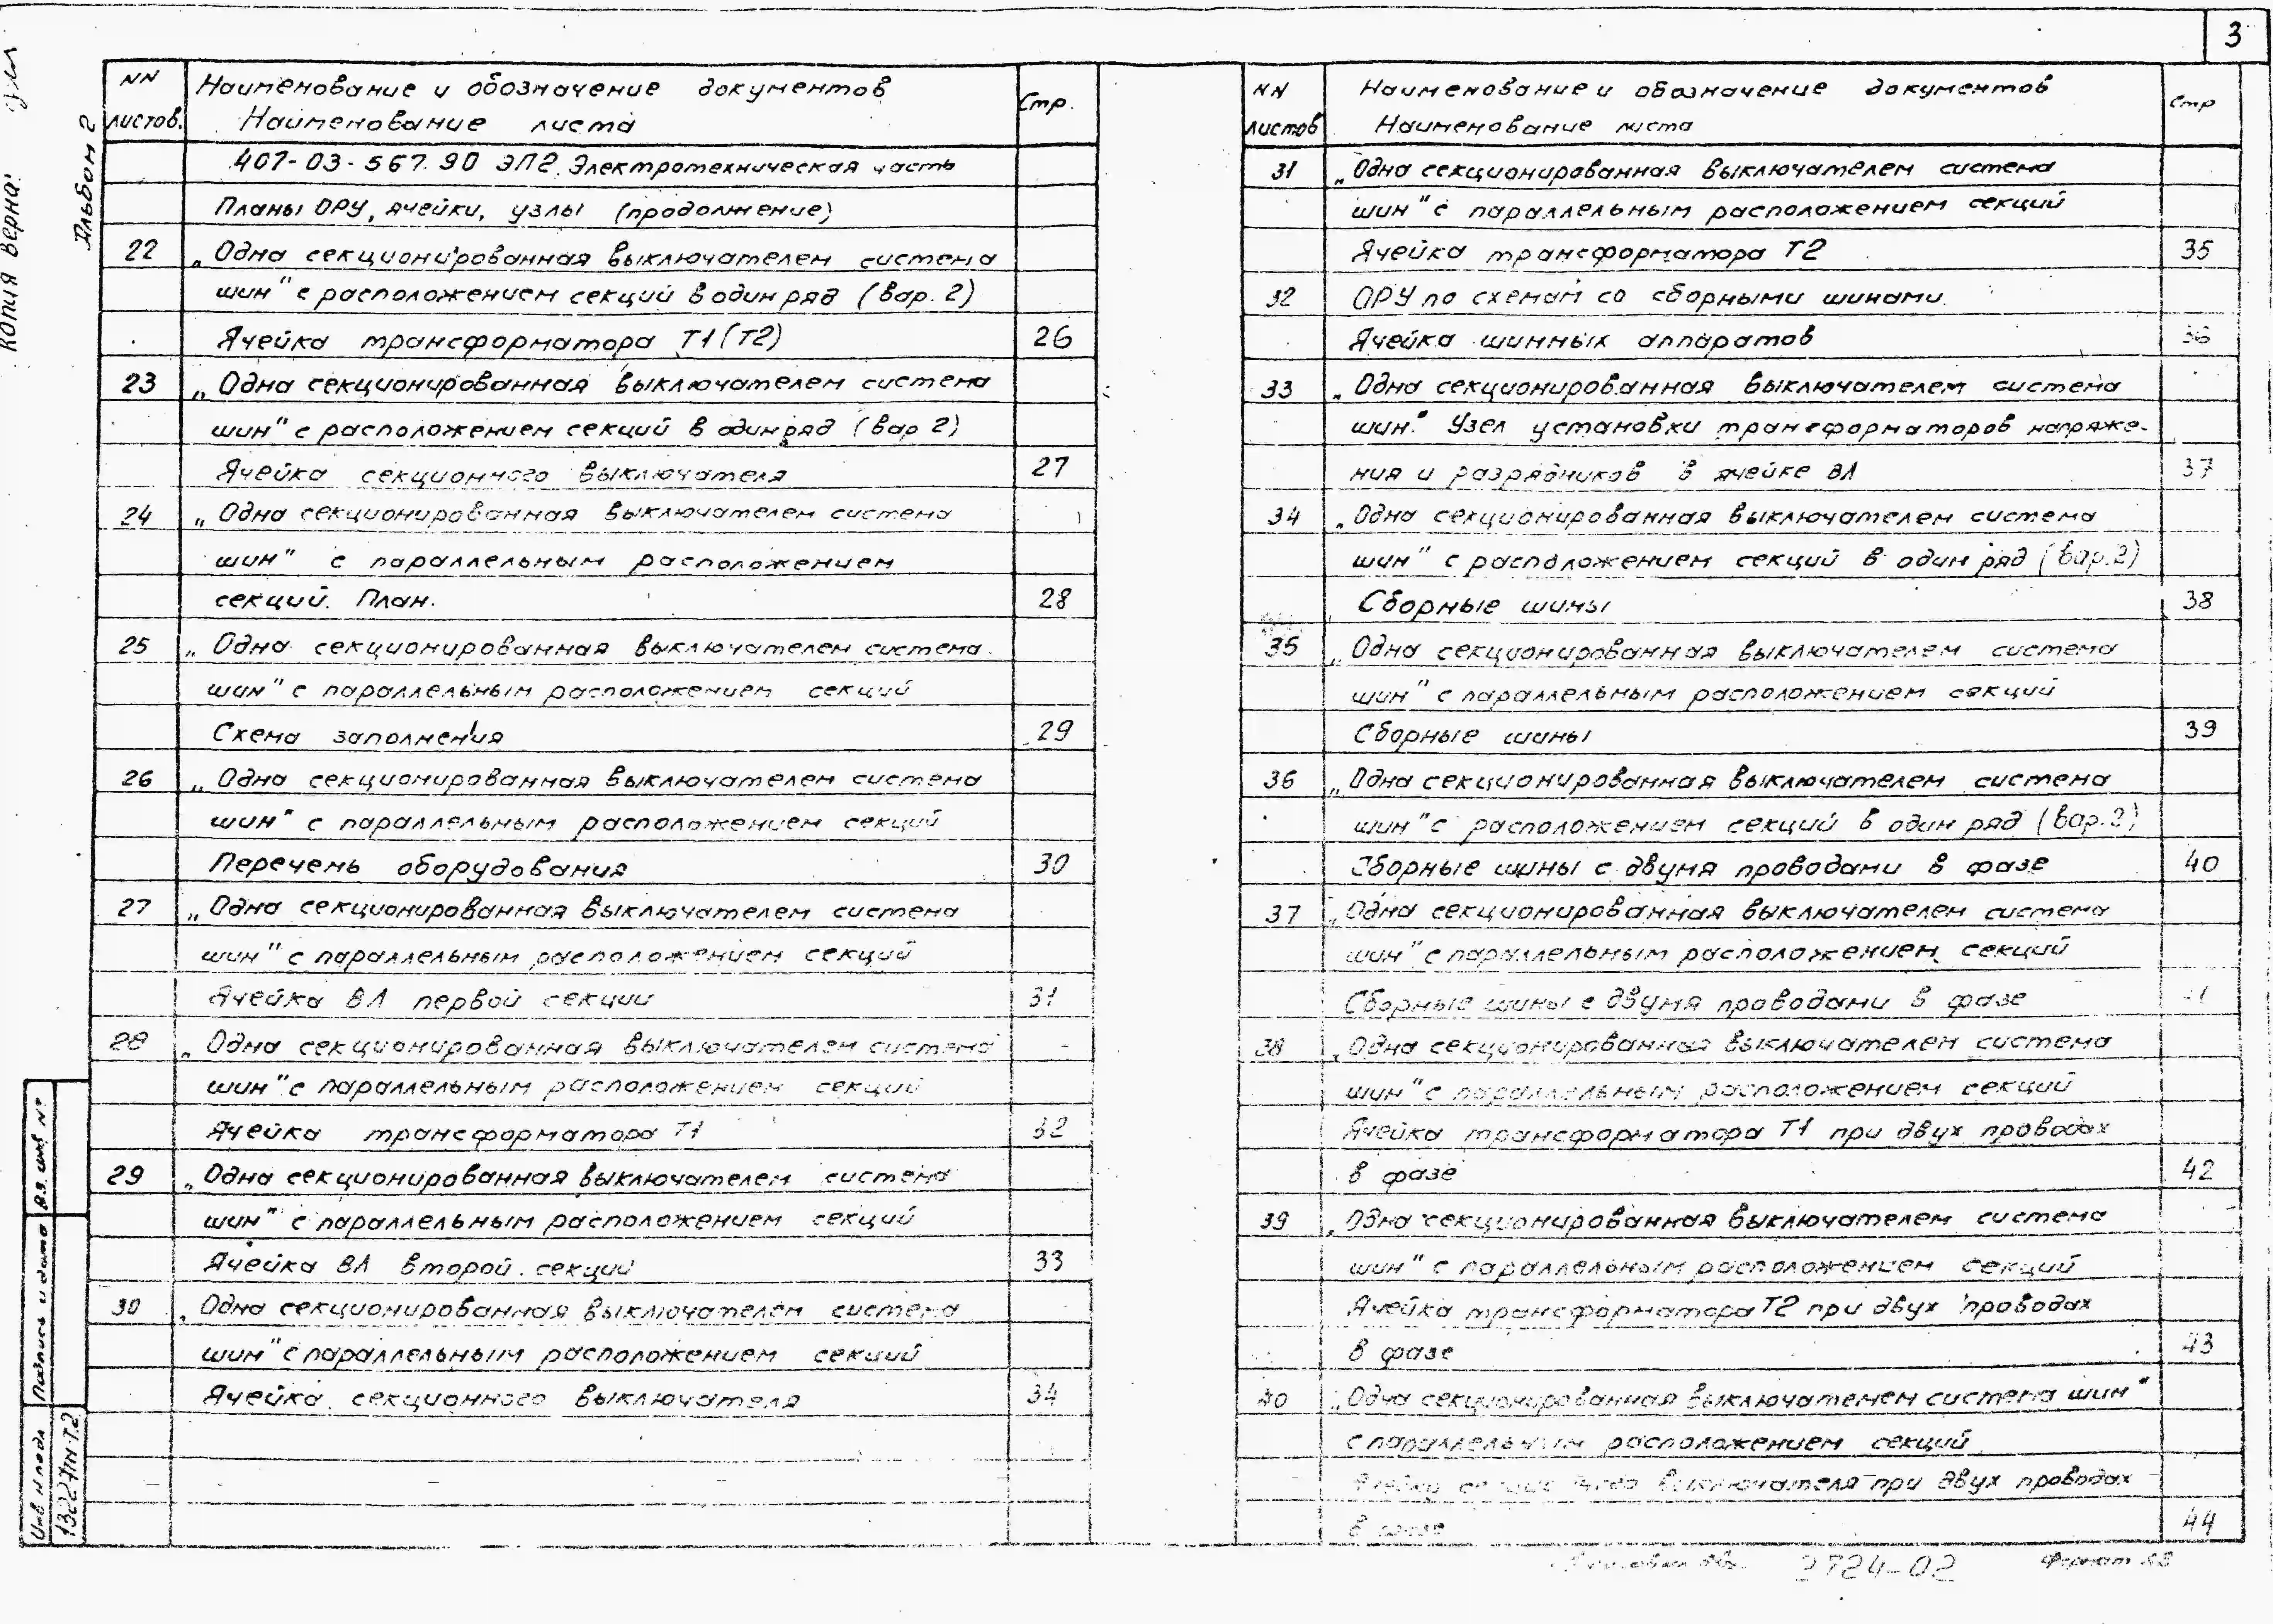 3
Копия верна:
Альбом 2
NN листов.
Наименование и обозначение документов
Наименование листа
Стр.
407-03-567.90 ЭП2. Электротехническая часть
Планы ОРУ, ячейки, узлы (продолжение)
22 „Одна секционированная выключателем система
шин" с расположением секций в один ряд (вар. 2)
Ячейка трансформатора Т1 (Т2) 26
23 „Одна секционированная выключателем система
шин" с расположением секций в один ряд (вар 2)
Ячейка секционного выключателя 27
24 „Одна секционированная выключателем система
шин" с параллельным расположением
секций. План. 28
25 „Одна секционированная выключателем система
шин" с параллельным расположением секций
Схема заполнения 29
26 „Одна секционированная выключателем система
шин" с параллельным расположением секций
Перечень оборудования 30
27 „Одна секционированная выключателем система
шин" с параллельным расположением секций
Ячейка ВЛ первой секции 31
28 „Одна секционированная выключателем система
шин" с параллельным расположением секций
Ячейка трансформатора Т1 32
29 „Одна секционированная выключателем система
шин" с параллельным расположением секций
Ячейка ВЛ второй секции 33
30 „Одна секционированная выключателем система
шин" с параллельным расположением секций
Ячейка секционного выключателя 34
NN листов
Наименование и обозначение документов
Наименование листа
Стр
31 „Одна секционированная выключателем система
шин" с параллельным расположением секций
Ячейка трансформатора Т2 35
32 ОРУ по схемам со сборными шинами.
Ячейка шинных аппаратов 36
33 „Одна секционированная выключателем система
шин". Узел установки трансформаторов напряже-
ния и разрядников в ячейке ВЛ 37
34 „Одна секционированная выключателем система
шин" с расположением секций в один ряд (вар.2)
Сборные шины 38
35 „Одна секционированная выключателем система
шин" с параллельным расположением секций
Сборные шины 39
36 „Одна секционированная выключателем система
шин" с расположением секций в один ряд (вар.2)
Сборные шины с двумя проводами в фазе 40
37 „Одна секционированная выключателем система
шин" с параллельным расположением секций
Сборные шины с двумя проводами в фазе 41
38 „Одна секционированная выключателем система
шин" с параллельным расположением секций
Ячейка трансформатора Т1 при двух проводах
в фазе 42
39 „Одна секционированная выключателем система
шин" с параллельным расположением секций
Ячейка трансформатора Т2 при двух проводах
в фазе 43
40 „Одна секционированная выключателем система шин"
с параллельным расположением секций
Ячейка секционного выключателя при двух проводах
в фазе 44
Вз. инв №
Подпись и дата
Инв N подл
13227тм-т2
2724-02
Формат А3